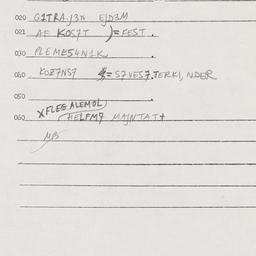 020 G1TRA.J3N EJD3M
021 AF KOS7T )= FEST.
030 PLEME54N1K
040 KOZ7NS7 = S7VES7.TERKI, NDER
050
XFLEG ALEMOL)
060 (HELFM7 MAJNTAT+